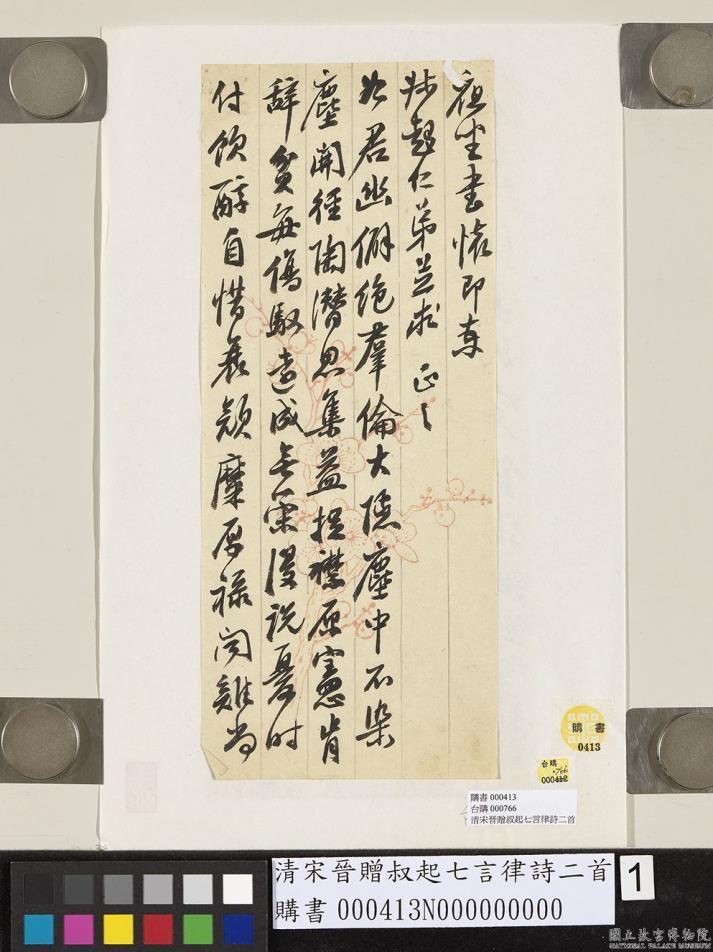 夜坐書懷即柬
叔起仁弟並求 正之
如君幽僻絶羣倫大隱塵中不染
塵開徑陶潛思集益捉襟原憲肯
辭貧每傷馭遠成無策漫說憂時
付飲醇自惜衰顏糜厚祿聞雞尚
購書
0413
台購
購書 000413
台購 000766
清宋晉贈叔起七言律詩二首
清宋晉贈叔起七言律詩二首
購書 000413N000000000
1
國立故宮博物院
NATIONAL PALACE MUSEUM